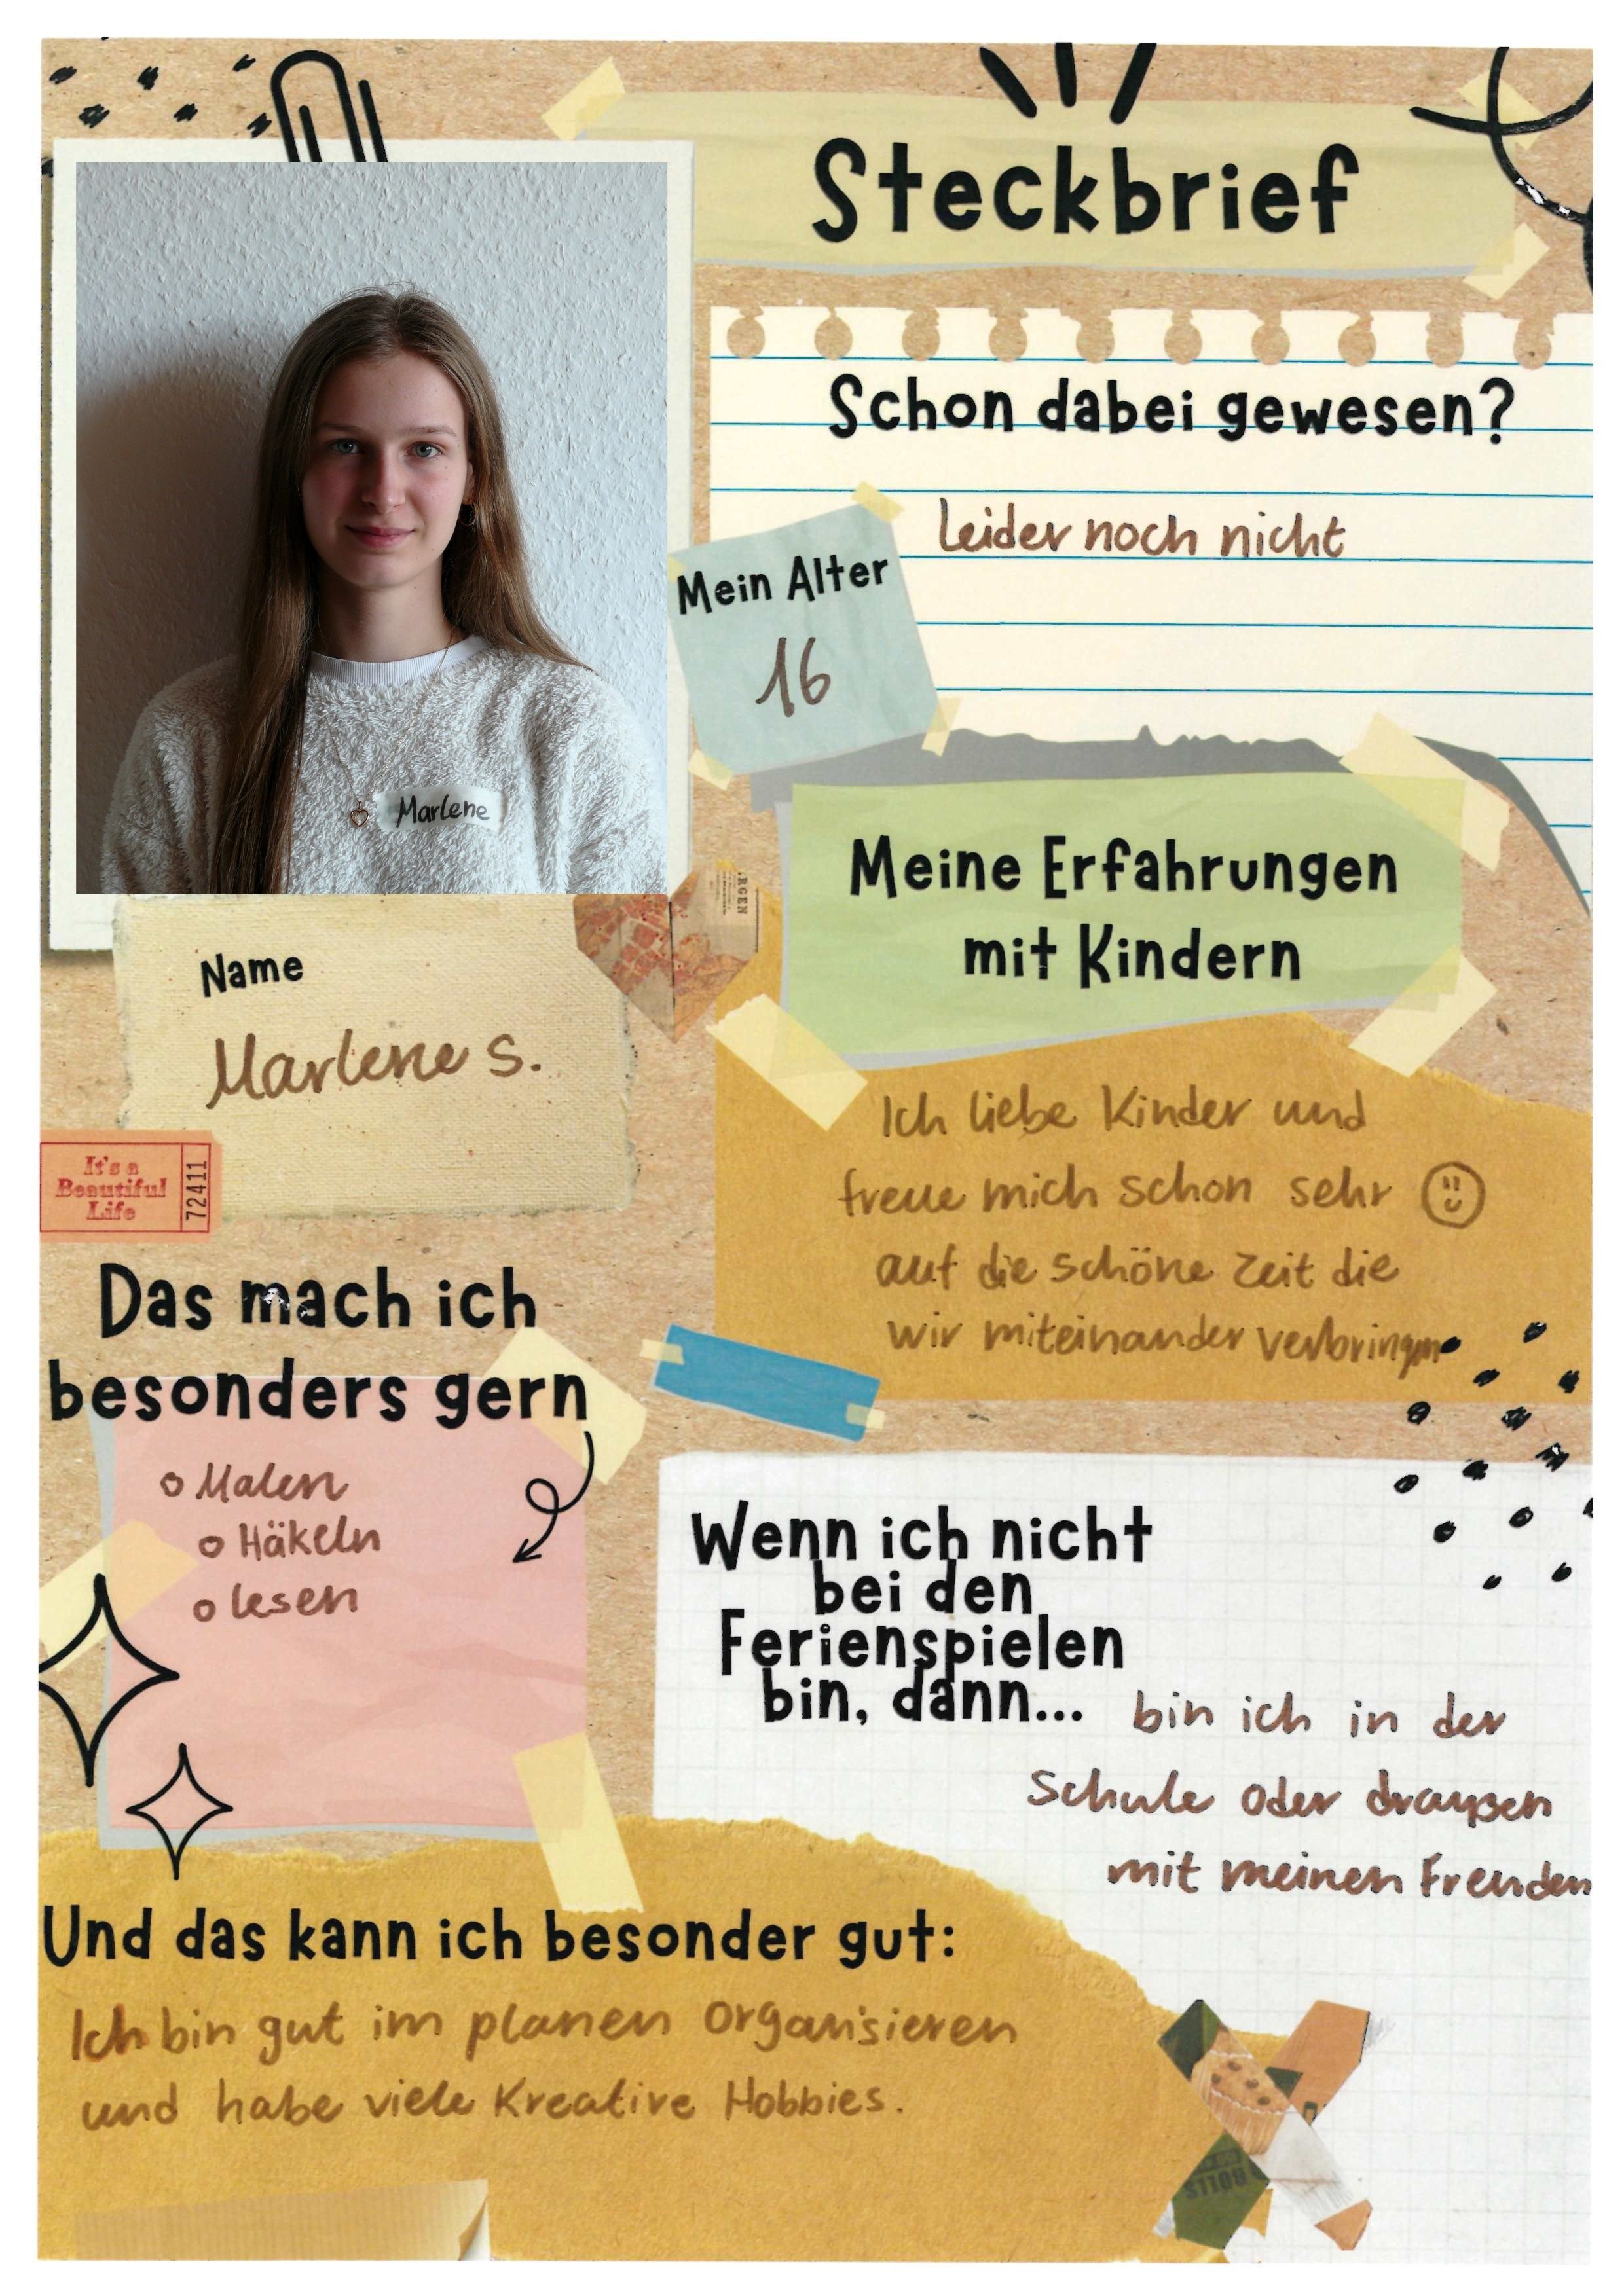 Steckbrief
Schon dabei gewesen?
leider noch nicht
Mein Alter
16
Marlene
Name
Marlene S.
Meine Erfahrungen
mit Kindern
Ich liebe Kinder und
freue mich schon sehr
auf die schöne Zeit die
wir miteinander verbringen
It's a
Beautiful
Life
72411
Das mach ich
besonders gern
Malen
Häkeln
lesen
Wenn ich nicht
bei den
Ferienspielen
bin, dann...
bin ich in der
Schule oder draußen
mit meinen Freunden
Und das kann ich besonder gut:
Ich bin gut im planen organisieren
und habe viele Kreative Hobbies.
ROLLS